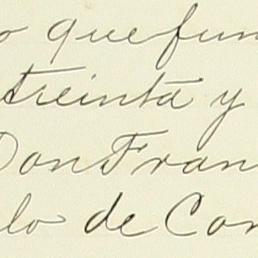 o que fun
treinta y
Don Fran
lo de Con